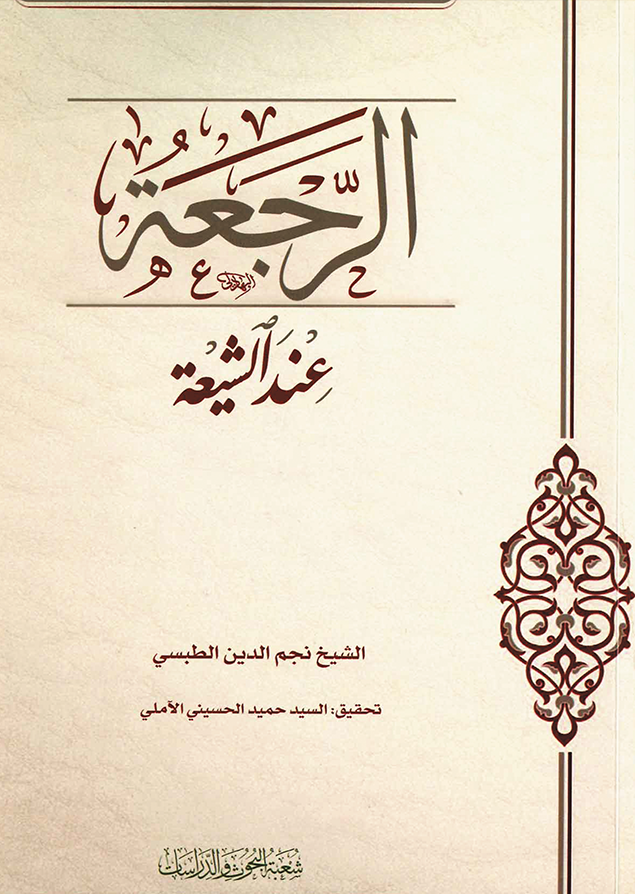 الرَّجَعَةُ
عِنْدَ الشيعة
الشيخ نجم الدين الطبسي
تحقيق: السيد حميد الحسيني الآملي
شعبة البحوث والدراسات